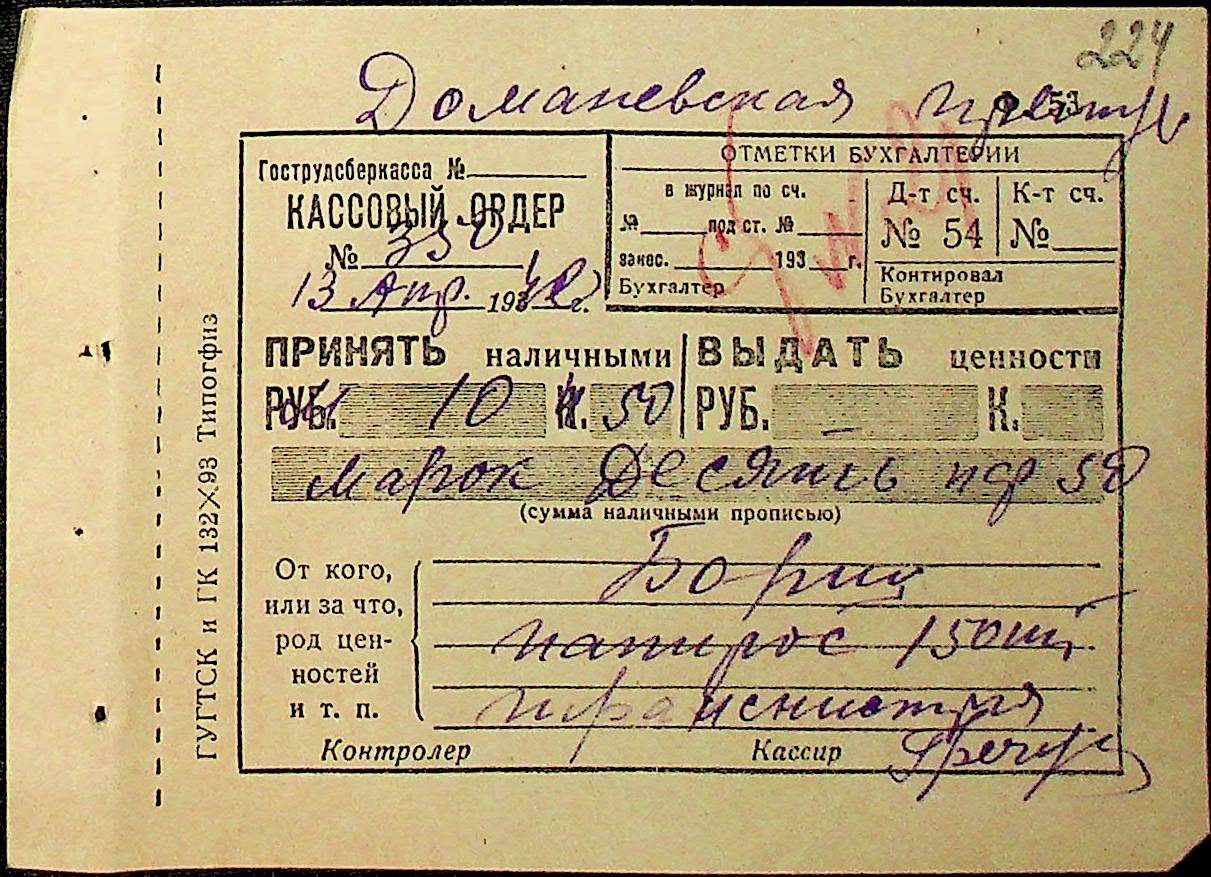 224
Доманевская
Ф. 53
Гострудсберкасса №
КАССОВЫЙ ОРДЕР
№ 350
13 Апр. 1942 г.
ОТМЕТКИ БУХГАЛТЕРИИ
в журнал по сч.
№ под ст. №
занес. 193 г.
Бухгалтер
Д-т сч.
№ 54
К-т сч.
№
Контировал
Бухгалтер
ПРИНЯТЬ наличными
РУБ. 10 К. 50
ВЫДАТЬ ценности
РУБ. – К.
марок Десять пф 50
(сумма наличными прописью)
От кого,
или за что,
род цен-
ностей
и т. п.
папирос 150 шт
Контролер
Кассир
ГУГТСК и ГК 132×93 Типогфиз